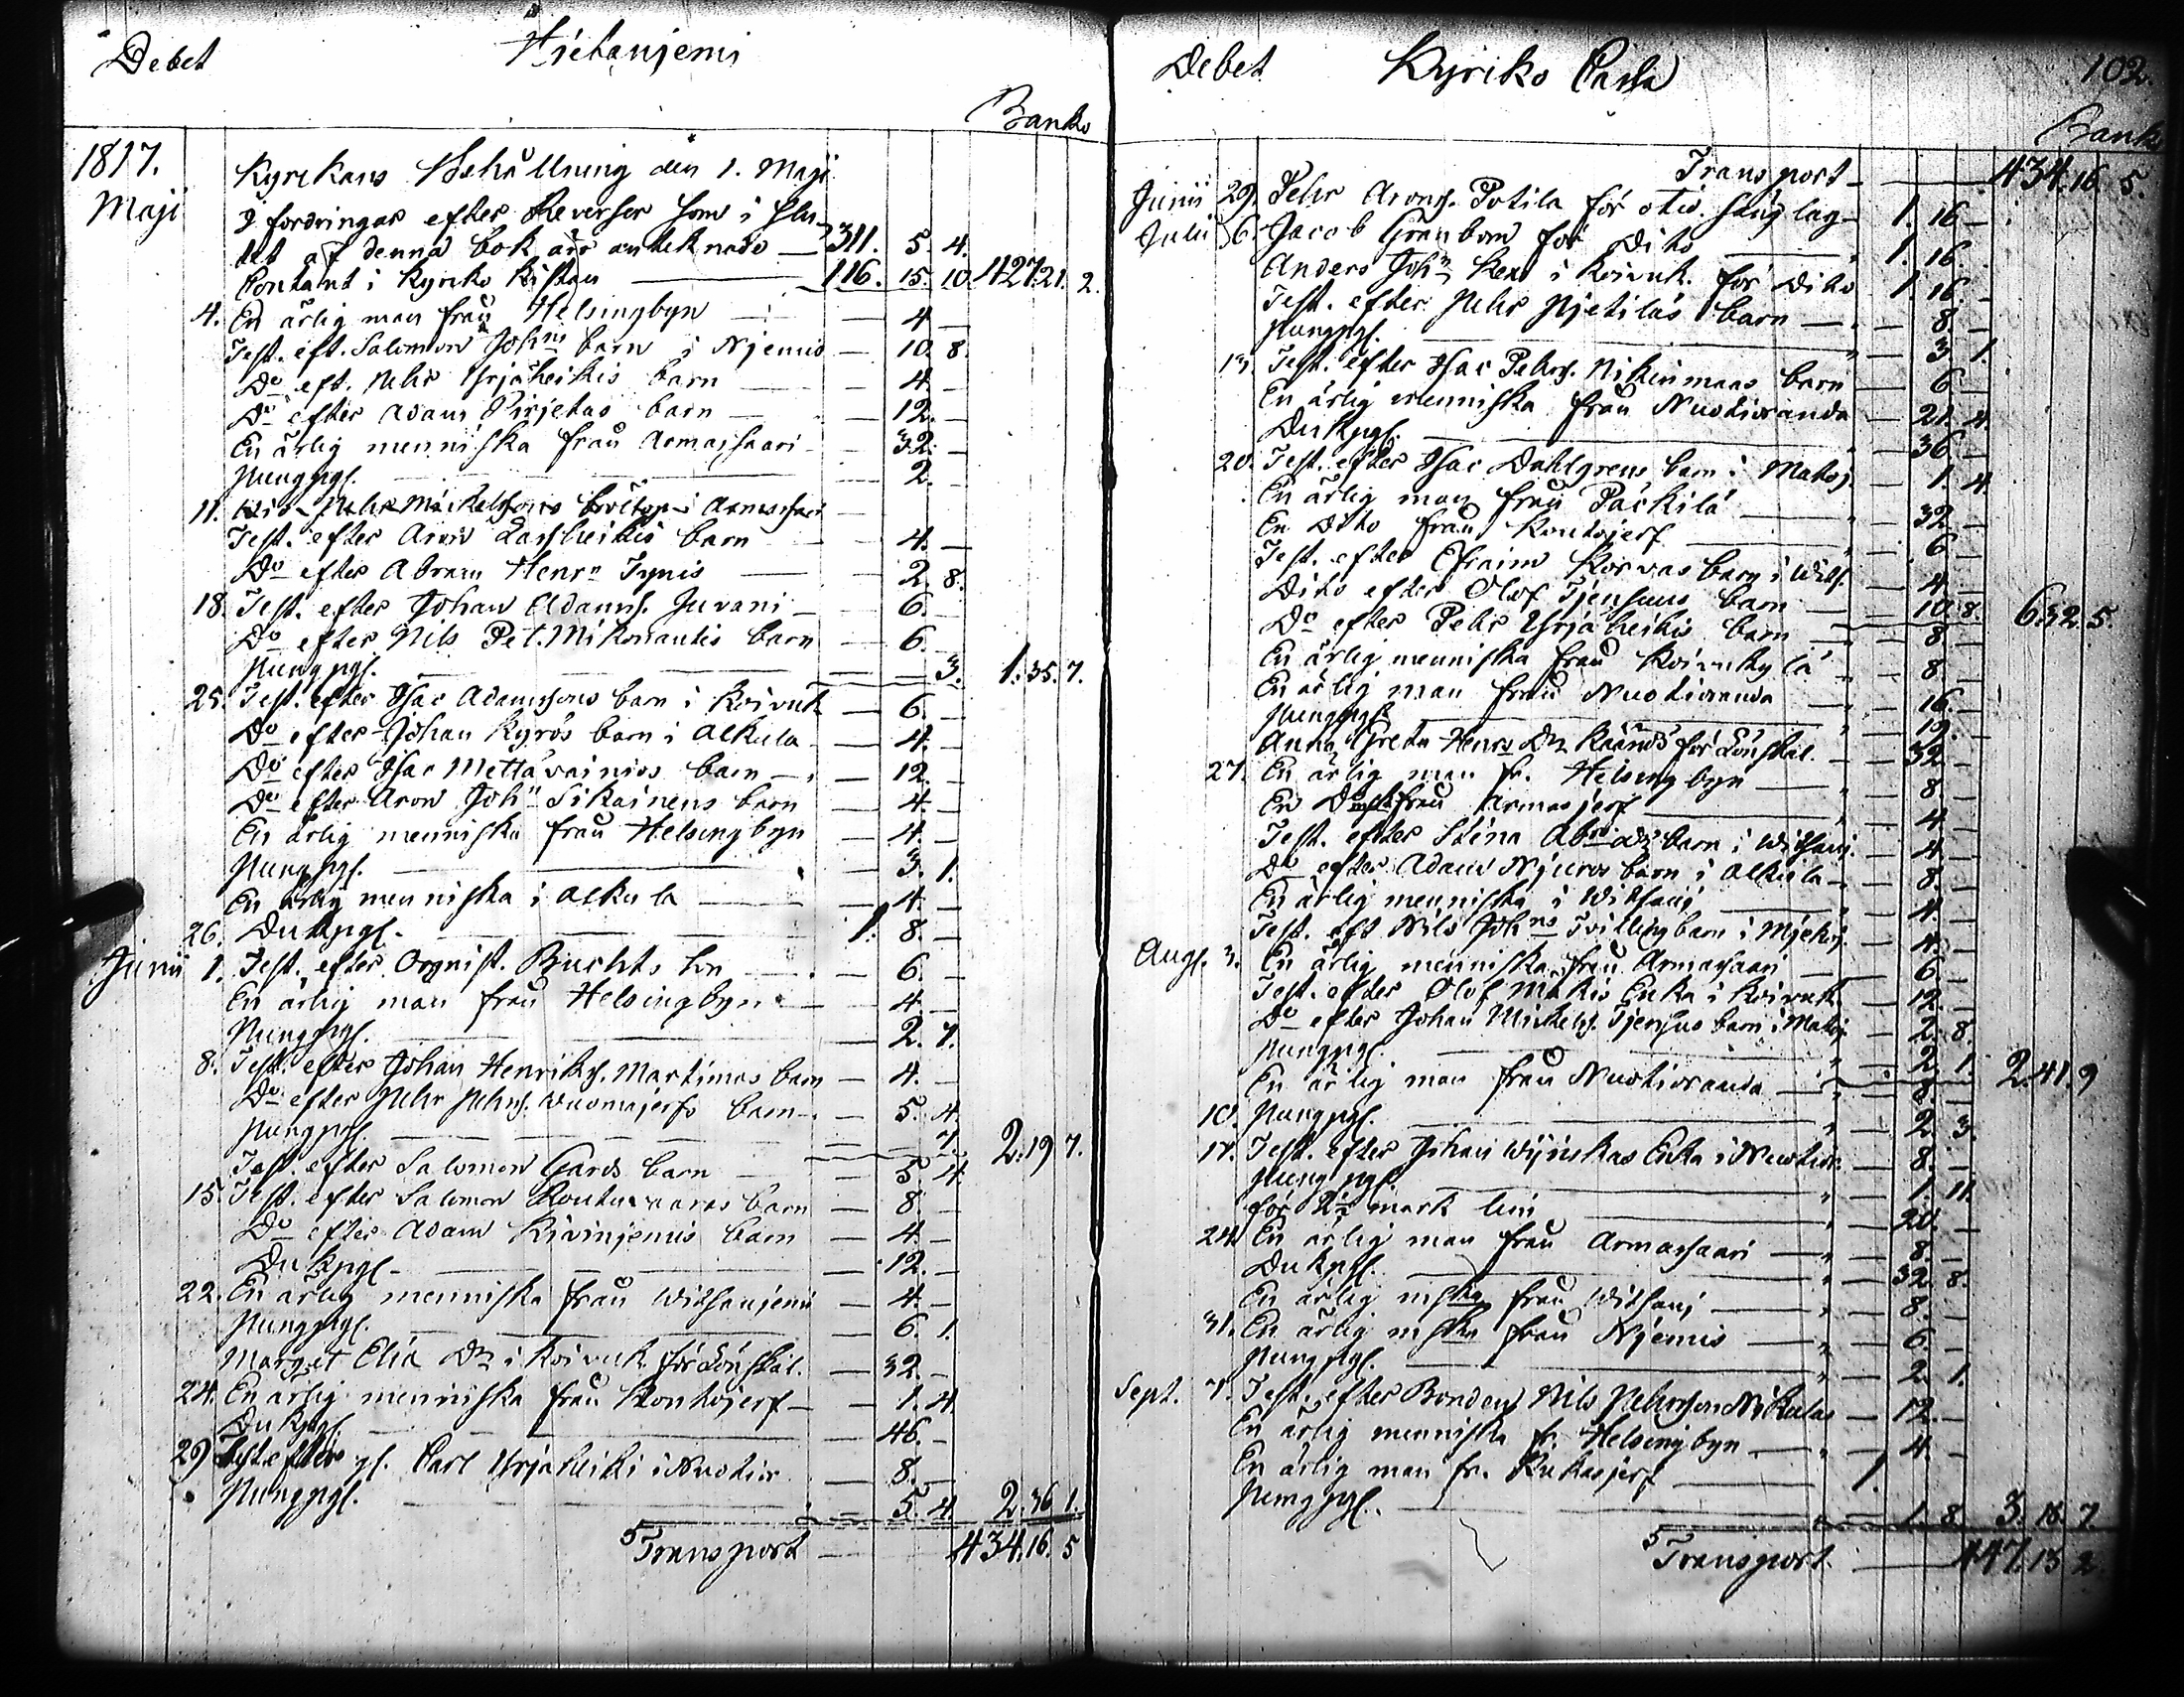 Debet Hietanjemi
Banko
1817.
Maji Kyrckans Behållning den 1. Maji
I fordringar efter Reverser som i slu-
tet af denna bok äro anteknade — 311. 5. 4.
Contant i Kyrko Kistan — 116. 15. 10. 427. 21. 2.
4. En ärlig man från Helsingbyn — 4 —
Test. eft. Salomon Johns barn i Njemis — 10. 8.
Do eft. Pehr Yrjäheikis barn — 4. —
Do efter Adam Pirjetas barn — 12. —
En ärlig menniska från Armassaari — 32. —
Pungpgl. — 2. —
11.
Test. efter Aron Lassheikis barn — 4. —
Do efter Abram Henrn Tynis — 2. 8.
18. Test. efter Johan Adams. Juvani — 6. —
Do efter Nils Pet. Mikonantis barn — 6. —
Pungpgl. — 3. 1. 35. 7.
25. Test. efter Isac Adamssons barn i Koivuk — 6. —
Do efter Johan Kyrös barn i Alkula — 4. —
Do efter Isac Mettävainios barn — 12. —
Do efter Aron John Sikainens barn — 4. —
En ärlig menniska från Helsingbyn — 4. —
Pungpgl. — 3. 1.
En ärlig menniska i Alkula — 4. —
26. Dukpgl. — 1. 8. —
Junii 1. Test. efter Orgnist. Buchts — 6. —
En ärlig man från Helsingbyn — 4. —
Pungpgl. — 2. 7.
8. Test. efter Johan Henriks. Martimos barn — 4. —
Do efter Pehr Pehrs. Wuomajerfs barn — 5. 4.
Pungpgl. — 7. 2. 19. 7.
Test. efter Salomon Gards barn — 5. 4.
15. Test. efter Salomon Kouturaaras barn — 8. —
Do efter Adam Kivinjemis barn — 4. —
Dukpgl. — 12. —
22. En ärlig menniska från Witsanjemi — 4. —
Pungpgl. — 6. 1.
Margret Elia Dr i Koivuk. för Lönskal. — 32. —
24. En ärlig menniska från Kontojerf — 1. 4.
Dukpgl. — 46. —
29. Test. efter gl. Carl Yrjäheiki i Nuotior — 8. —
Pungpgl. — 5. 4. 2. 36. 1.
Transport — 434. 16. 5
Debet Kyriko Cassa 102.
Banko
Transport — 434. 16. 5.
Junii 29. Pehr Arons. Potila för otid. sänglag — 1. 16 —
Julii 6. Jacob Granbom för Dito — 1. 16. —
Anders John i Koivuk. för Dito 1. 16. —
Test. efter Pehr Pjetiläs barn — 8. —
Pungpgl. — 3. 1.
13. Test. efter Isac Pehrs. Nikinmaas barn — 6 —
En ärlig menniska från Nuotioranda — 21. 4.
Dukpgl. — 36 —
20. Test. efter Isac Dahlgrens barn i Matoj. — 1. 4.
En ärlig man från Päckilä — 32 —
En Dito från Kontojerf — 6 —
Test. efter Efraim Korvas barn i Wits. — 4 —
Dito efter Olof Tjensuus barn — 10. 8. 6. 32. 5.
Do efter Pehr Yrjäheikis barn — 8 —
En ärlig menniska från Koivukylä — 8. —
En ärlig man från Nuotioranda — 16. —
Pungpgl. — 19. —
Anna Greta Henrs Dr för Lönskal. — 32 —
27. En ärlig man fr. Helsingbyn — 8. —
En från Armasjerf — 4 —
Test. efter Stina barn i Witsanj. — 4 —
Do efter Adam Njuros barn i Alkula — 8. —
En ärlig menniska i Witsanj — 4. —
Test. eft Nils Johns Tvillingbarn i — 4. —
Augs. 3. En ärlig menniska från Armassaari — 6 —
Test. efter Olof Mäkis Enka i Koivuk. — 12. —
Do efter Johan Mickels. Tjensuus barn i Matoj — 2. 8.
Pungpgl. — 2. 1. 2. 41. 9
En ärlig man från Nuotioranda — 8. —
10. Pungpgl. — 2. 3.
17. Test. efter Johan Wijnikas Enka i Nuotior — 8. —
Pungpgl. — 1. 11.
för 2½ mark lin — 20. —
24. En ärlig man från Armassaari — 8 —
Dukpgl. — 32. 8.
En ärlig mska från Witsanj — 8. —
31. En ärlig mska från Njemis — 6. —
Pungpgl. — 2. 1.
Sept. 7. Test. efter Bonden Nils Pehrsson Nikulas — 12. —
En ärlig menniska fr. Helsingbyn — 4. —
En ärlig man fr. Rukasjerf — 1.
Pungpgl. — 1. 8. 3. 18. 7.
Transport — 447. 13 2.